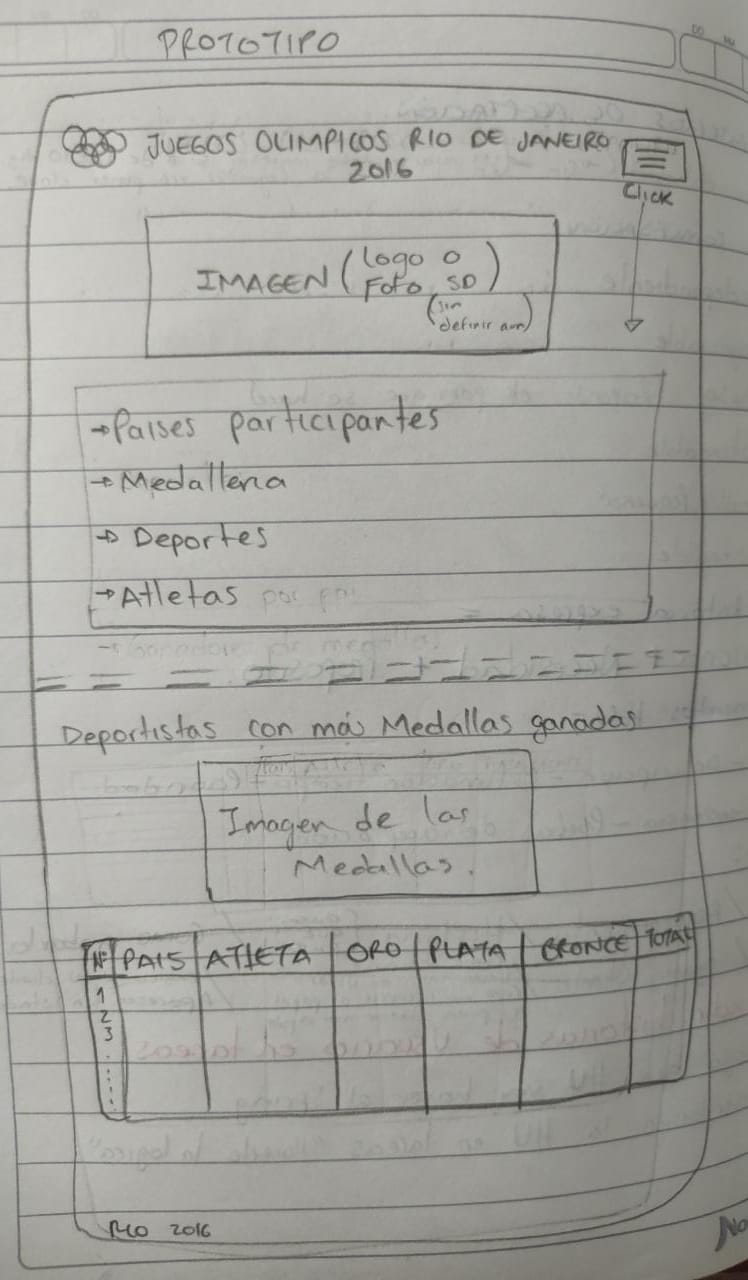 PROTOTIPO
JUEGOS OLIMPICOS RIO DE JANEIRO
2016
Click
IMAGEN (Logo o
Foto SD)
(sin
definir aun)
→Paises participantes
→Medalleria
→Deportes
→Atletas por
Deportistas con más Medallas ganadas
Imagen de las
Medallas.
Nº PAIS ATLETA ORO PLATA BRONCE TOTAL
1
2
3
RIO 2016